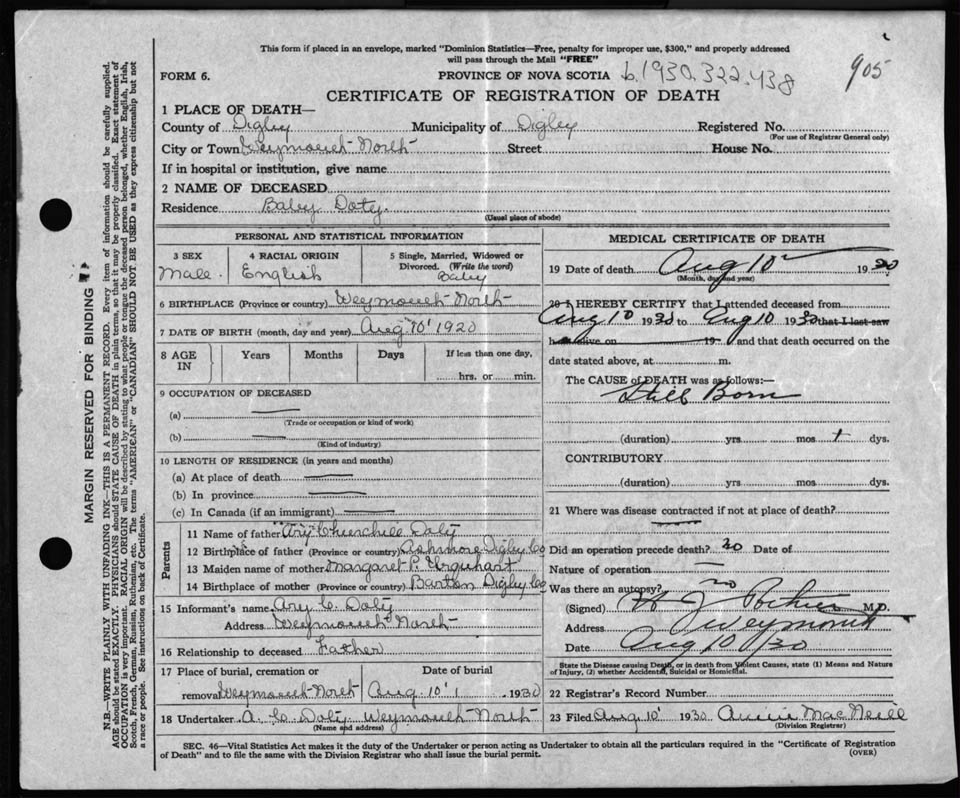 This form if placed in an envelope, marked "Dominion Statistics—Free, penalty for improper use, $300," and properly addressed
will pass through the Mail "FREE"
FORM 6.
PROVINCE OF NOVA SCOTIA
b.1930.322.438
905
CERTIFICATE OF REGISTRATION OF DEATH
1 PLACE OF DEATH—
County of Digby Municipality of Digby Registered No.
(For use of Registrar General only)
City or Town Weymouth North Street House No.
If in hospital or institution, give name
2 NAME OF DECEASED
Residence Baby Doty
(Usual place of abode)
PERSONAL AND STATISTICAL INFORMATION
3 SEX 4 RACIAL ORIGIN 5 Single, Married, Widowed or
Divorced. (Write the word)
Male. English Baby
6 BIRTHPLACE (Province or country) Weymouth North
7 DATE OF BIRTH (month, day and year) Aug 10' 1920
8 AGE IN Years Months Days If less than one day,
hrs. or min.
9 OCCUPATION OF DECEASED
(a)
(Trade or occupation or kind of work)
(b)
(Kind of industry)
10 LENGTH OF RESIDENCE (in years and months)
(a) At place of death
(b) In province
(c) In Canada (if an immigrant)
Parents
11 Name of father "Ary" Churchill Doty
12 Birthplace of father (Province or country) Ashmore Digby Co
13 Maiden name of mother Margaret P. Urquhart
14 Birthplace of mother (Province or country) Barton Digby Co
15 Informant's name Ary C. Doty
Address Weymouth North
16 Relationship to deceased Father
17 Place of burial, cremation or Date of burial
removal Weymouth North Aug. 10' 1930
18 Undertaker A. C. Doty Weymouth North
(Name and address)
MEDICAL CERTIFICATE OF DEATH
19 Date of death Aug 10 1930
(Month, day and year)
20 I HEREBY CERTIFY that I attended deceased from
Aug 10 1930 to Aug 10 1930 that I last saw
h alive on 19 and that death occurred on the
date stated above, at m.
The CAUSE of DEATH was as follows:—
Still Born
(duration) yrs mos dys.
CONTRIBUTORY
(duration) yrs mos dys.
21 Where was disease contracted if not at place of death?
Did an operation precede death? no Date of
Nature of operation
Was there an autopsy? no
(Signed) M.D.
Address Weymouth
Date Aug 10/30
State the Disease causing Death, or in death from Violent Causes, state (1) Means and Nature
of Injury, (2) whether Accidental, Suicidal or Homicidal.
22 Registrar's Record Number
23 Filed Aug. 10' 1930 Annie MacNeill
(Division Registrar)
SEC. 46—Vital Statistics Act makes it the duty of the Undertaker or person acting as Undertaker to obtain all the particulars required in the "Certificate of Registration
of Death" and to file the same with the Division Registrar who shall issue the burial permit.
(OVER)
MARGIN RESERVED FOR BINDING
N.B.—WRITE PLAINLY WITH UNFADING INK—THIS IS A PERMANENT RECORD. Every item of information should be carefully supplied.
AGE should be stated EXACTLY. PHYSICIANS should STATE CAUSE OF DEATH in plain terms, so that it may be properly classified. Exact statement of
OCCUPATION is very important. RACIAL ORIGIN will be described by stating to what people or tongue the deceased person belonged, whether English, Irish,
Scotch, French, German, Russian, Ruthenian, etc. The terms "AMERICAN" or "CANADIAN" SHOULD NOT BE USED as they express citizenship but not
a race or people. See instructions on back of Certificate.